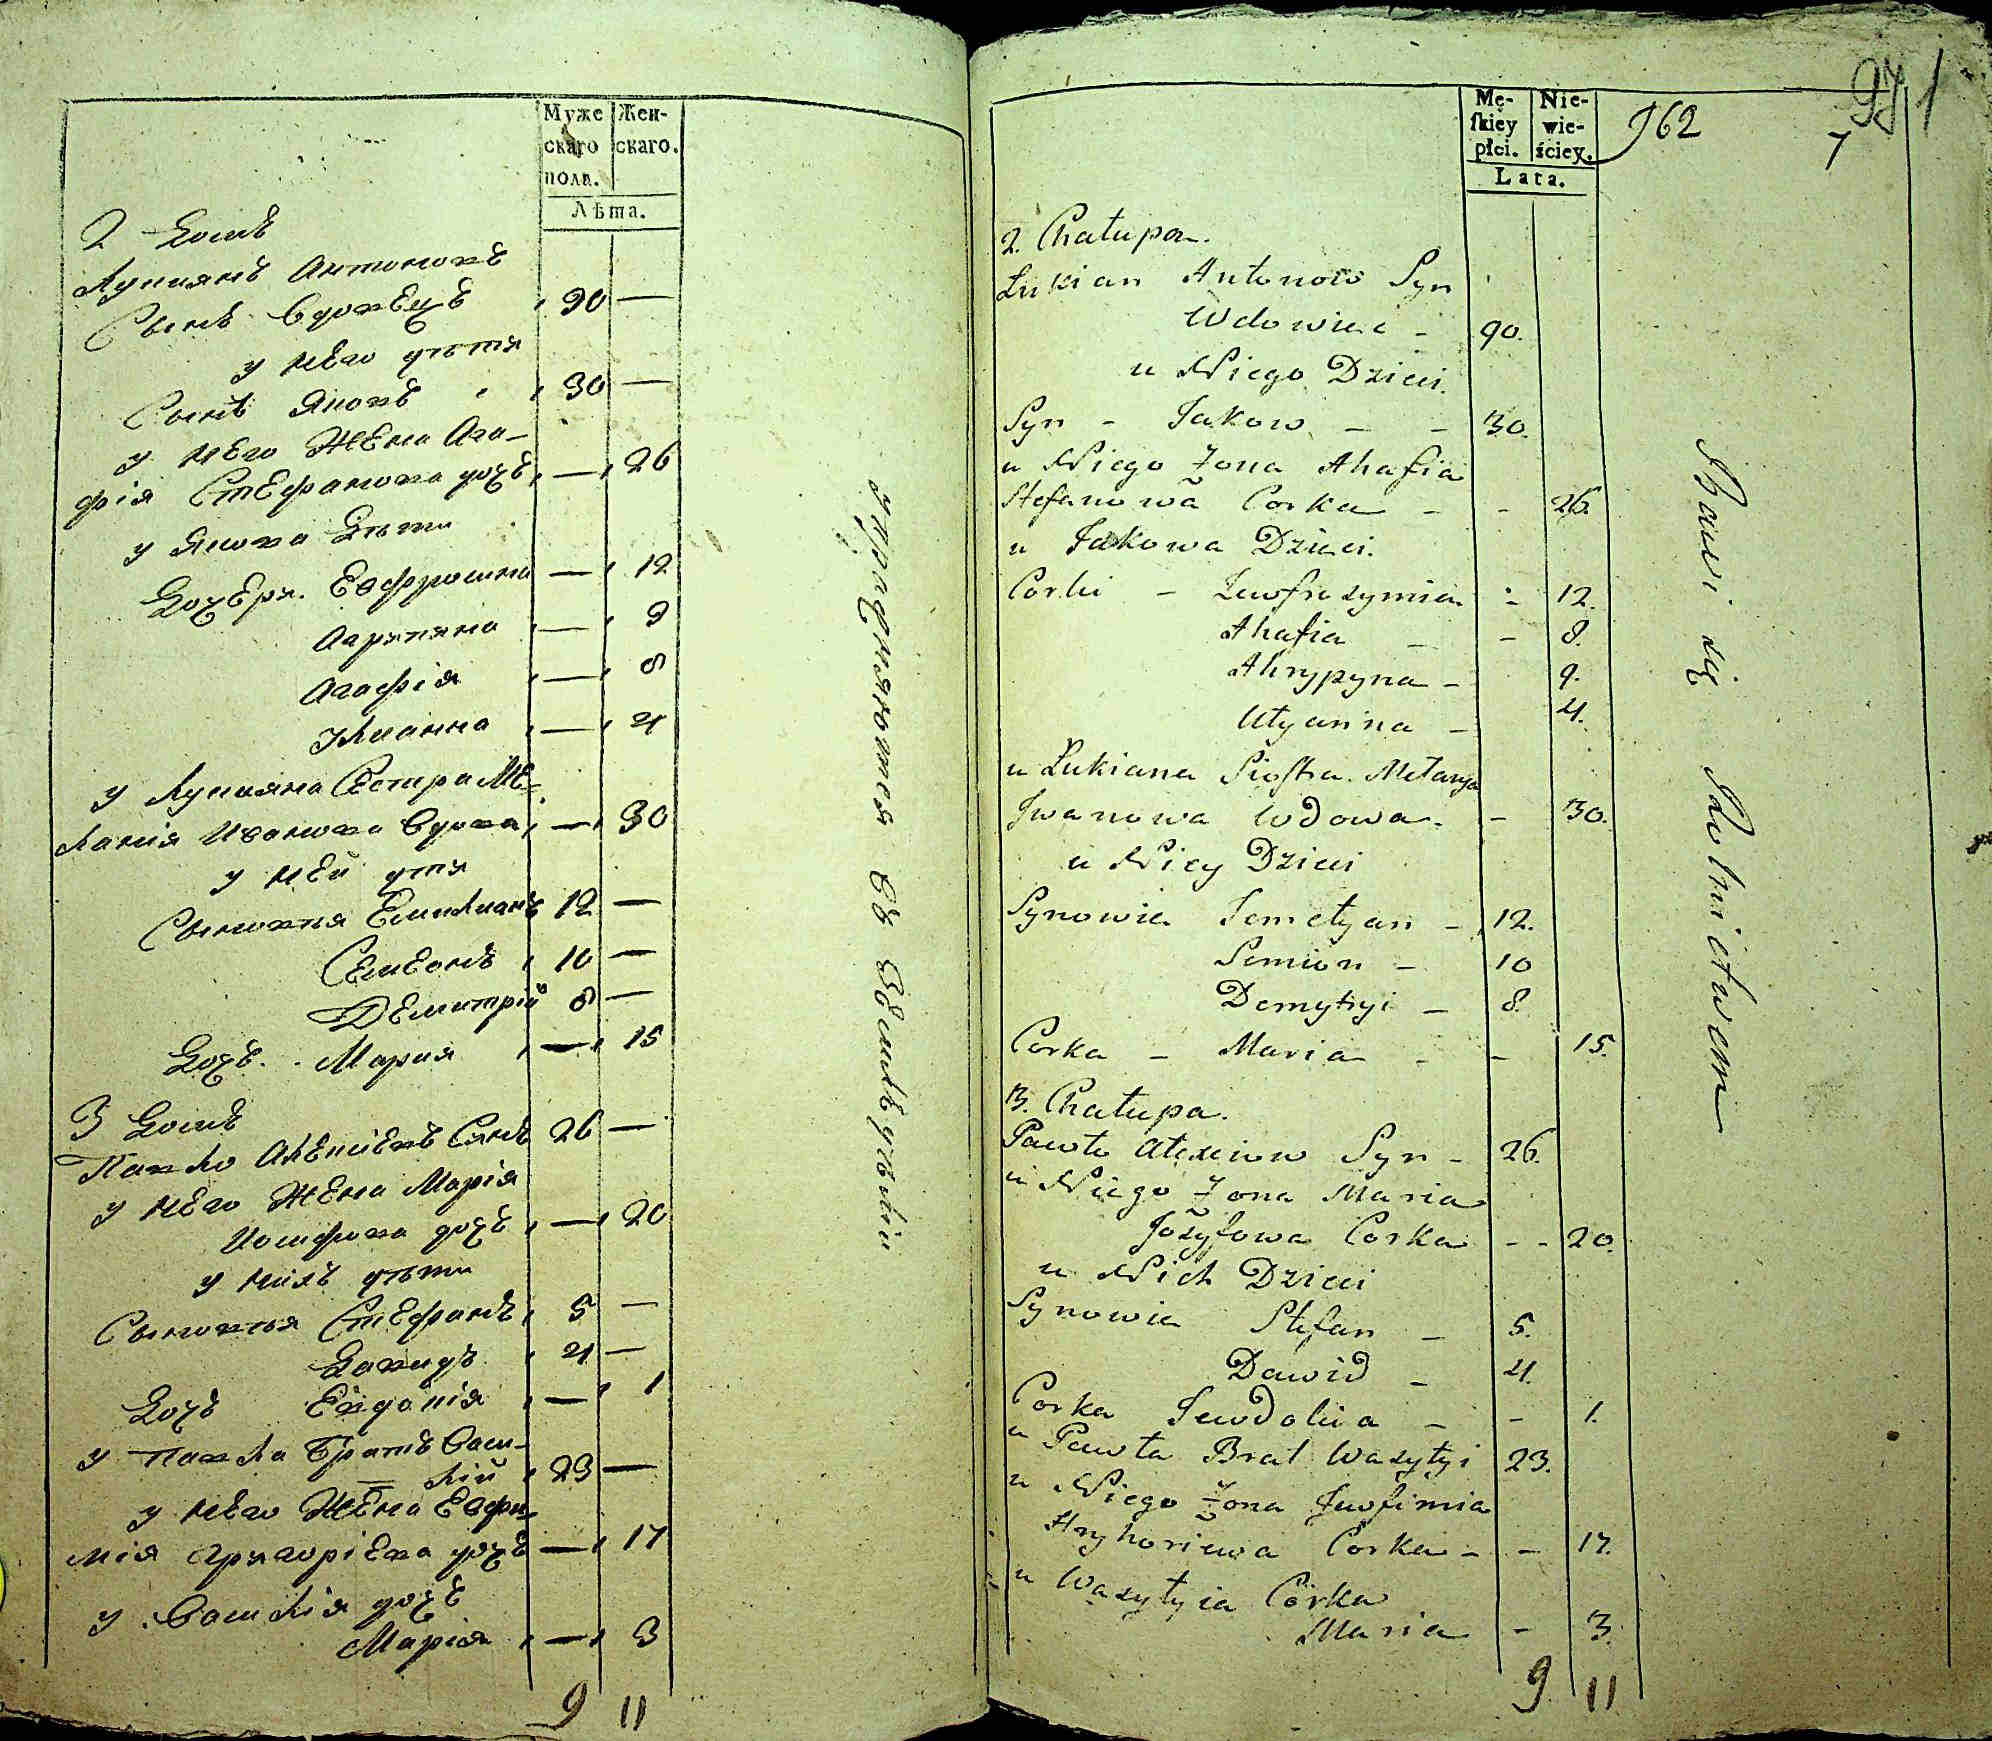 Муже
скаго
пола.
Жен-
скаго.
Лѣта.
2 Домъ
Лукіянъ Антоновъ
Сынъ Вдовецъ 90 —
у него дѣти
Сынъ Яковъ 30 —
у него Жена Ага-
фія Стефанова дочь — 26
у Якова Дѣти
Дочери. Евфросина — 12
Агрипина — 9
Агафія — 8
Улианна — 4
у Лукияна Сестра Ме-
лания Иванова вдова — 30
у ней дѣти
Сыновья Емилианъ 12 —
Семеонъ 10 —
Демитрій 8 —
Дочь. Мария — 15
3 Домъ
Павло Алексіевъ Сынъ 26 —
у него Жена Марія
Иосифова дочь — 20
у нихъ дѣти
Сыновья Стефанъ 5 —
Давидъ 4 —
Дочь Евдокія — 1
у Павла Братъ Васи-
лій 23 —
у него Жена Евфи-
мія Григоріева дочь — 17
у Василія дочь
Марія — 3
9 11
упражняются въ земледѣліи
Mę-
skiey
płci.
Nie-
wie-
ściey.
Lata.
962
971
7
2. Chałupa.
Łukian Antonow Syn
Wdowiec - 90.
u Niego Dzieci.
Syn - Jakow - - 30.
u Niego Żona Ahafia
Stefanowa Corka - - 26.
u Jakowa Dzieci.
Corki - Jewfrozymia - 12.
Ahafia - - 8.
Ahrypyna - 9.
Ulyanna - 4.
u Łukiana Siostra Melanya
Jwanowa Wdowa. - 30.
u Niey Dzieci
Synowie Jemelyan - 12.
Semion - 10
Demytryi - 8.
Corka - Maria - - 15.
3. Chałupa.
Pawło Alexiiow Syn - 26.
u Niego Żona Maria
Jozyfowa Corka - - 20.
u Nich Dzieci
Synowie Stefan - 5.
Dawid - 4.
Corka Jewdokia - - 1.
u Pawła Brat Wasylyi 23.
u Niego Żona Jewfimia
Hryhoriewa Corka - - 17.
u Wasylyia Córka
Maria - 3.
9 11
Bawi się Rolnictwem